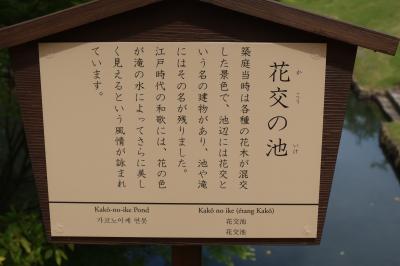 花交の池
かこう いけ
築庭当時は各種の花木が混交
した景色で、池辺には花交と
いう名の建物があり、池や滝
にはその名が残りました。
江戸時代の和歌には、花の色
が滝の水によってさらに美し
く見えるという風情が詠まれ
ています。
Kakō-no-ike Pond
가코노이케 연못
Kakō no ike (étang Kakō)
花交池
花交池